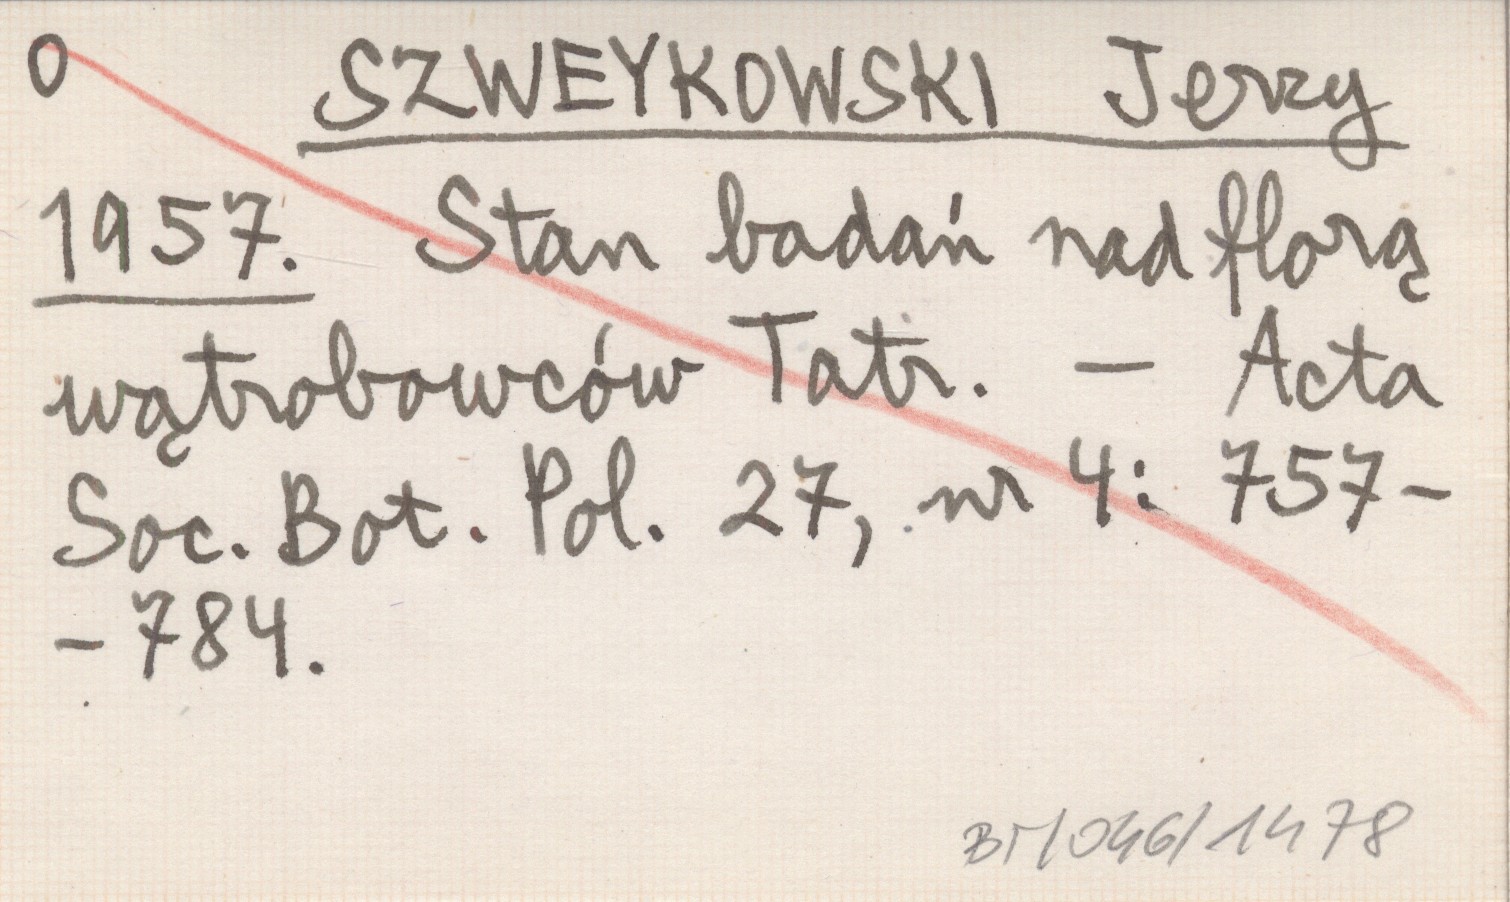 0 SZWEYKOWSKI Jerzy
1957. Stan badań nad florą
wątrobowców Tatr. — Acta
Soc. Bot. Pol. 27, nr 4: 757-
-784.
BT/046/1478